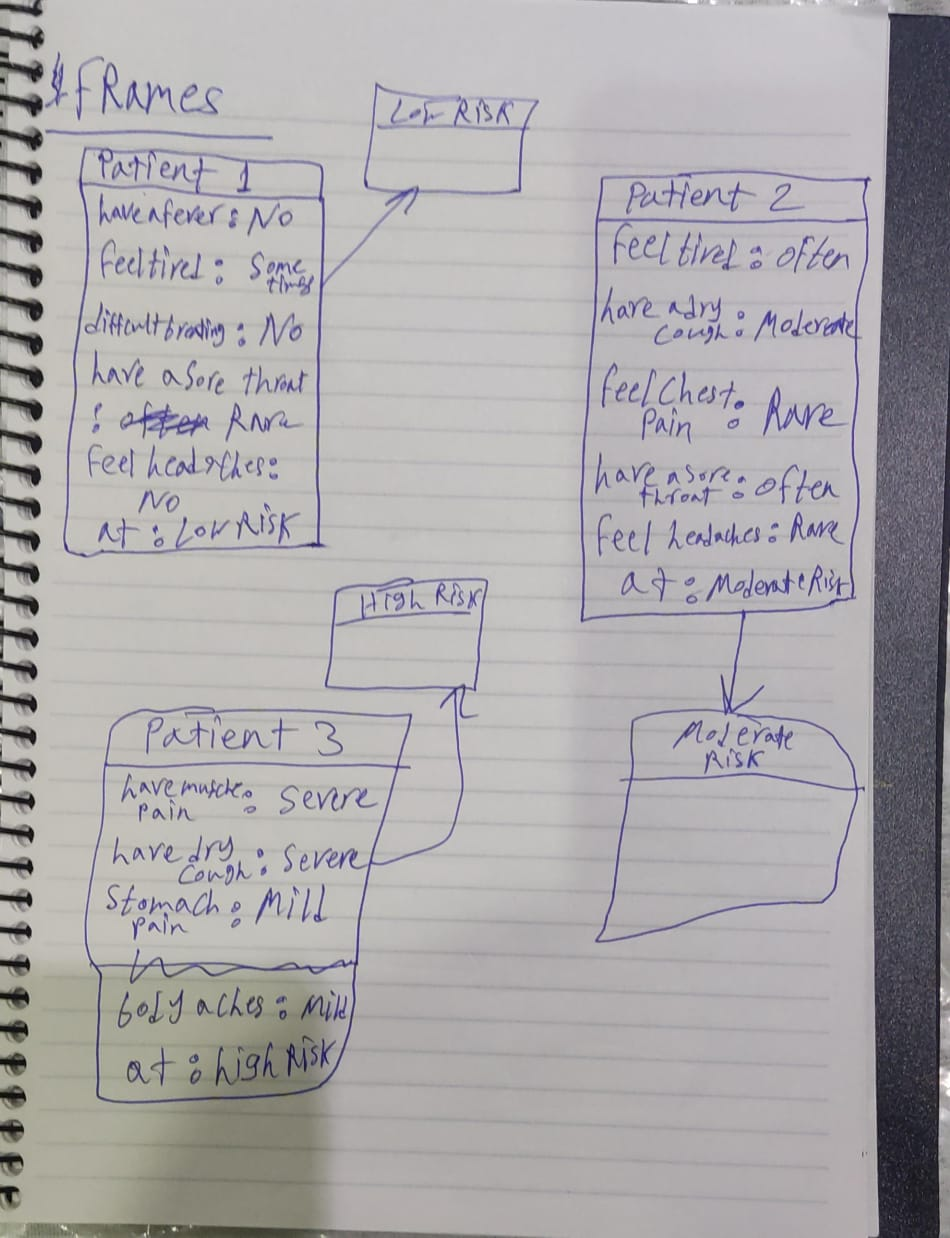 fRames
Low RISK
Patient 1
have a fever: No
feel tired: Some
times
difficult breading: No
have a sore throat
: Rare
feel headaches:
No
at: Low RISK
Patient 2
feel tired: often
have a dry
cough: Moderate
feel Chest
Pain: Rare
have a sore
throat: often
feel headaches: Rare
at: Moderate Risk
High RISK
Moderate
RISK
Patient 3
have muscle
pain: Severe
have dry
cough: Severe
Stomach
pain: Mild
body aches: Mild
at: high RISK